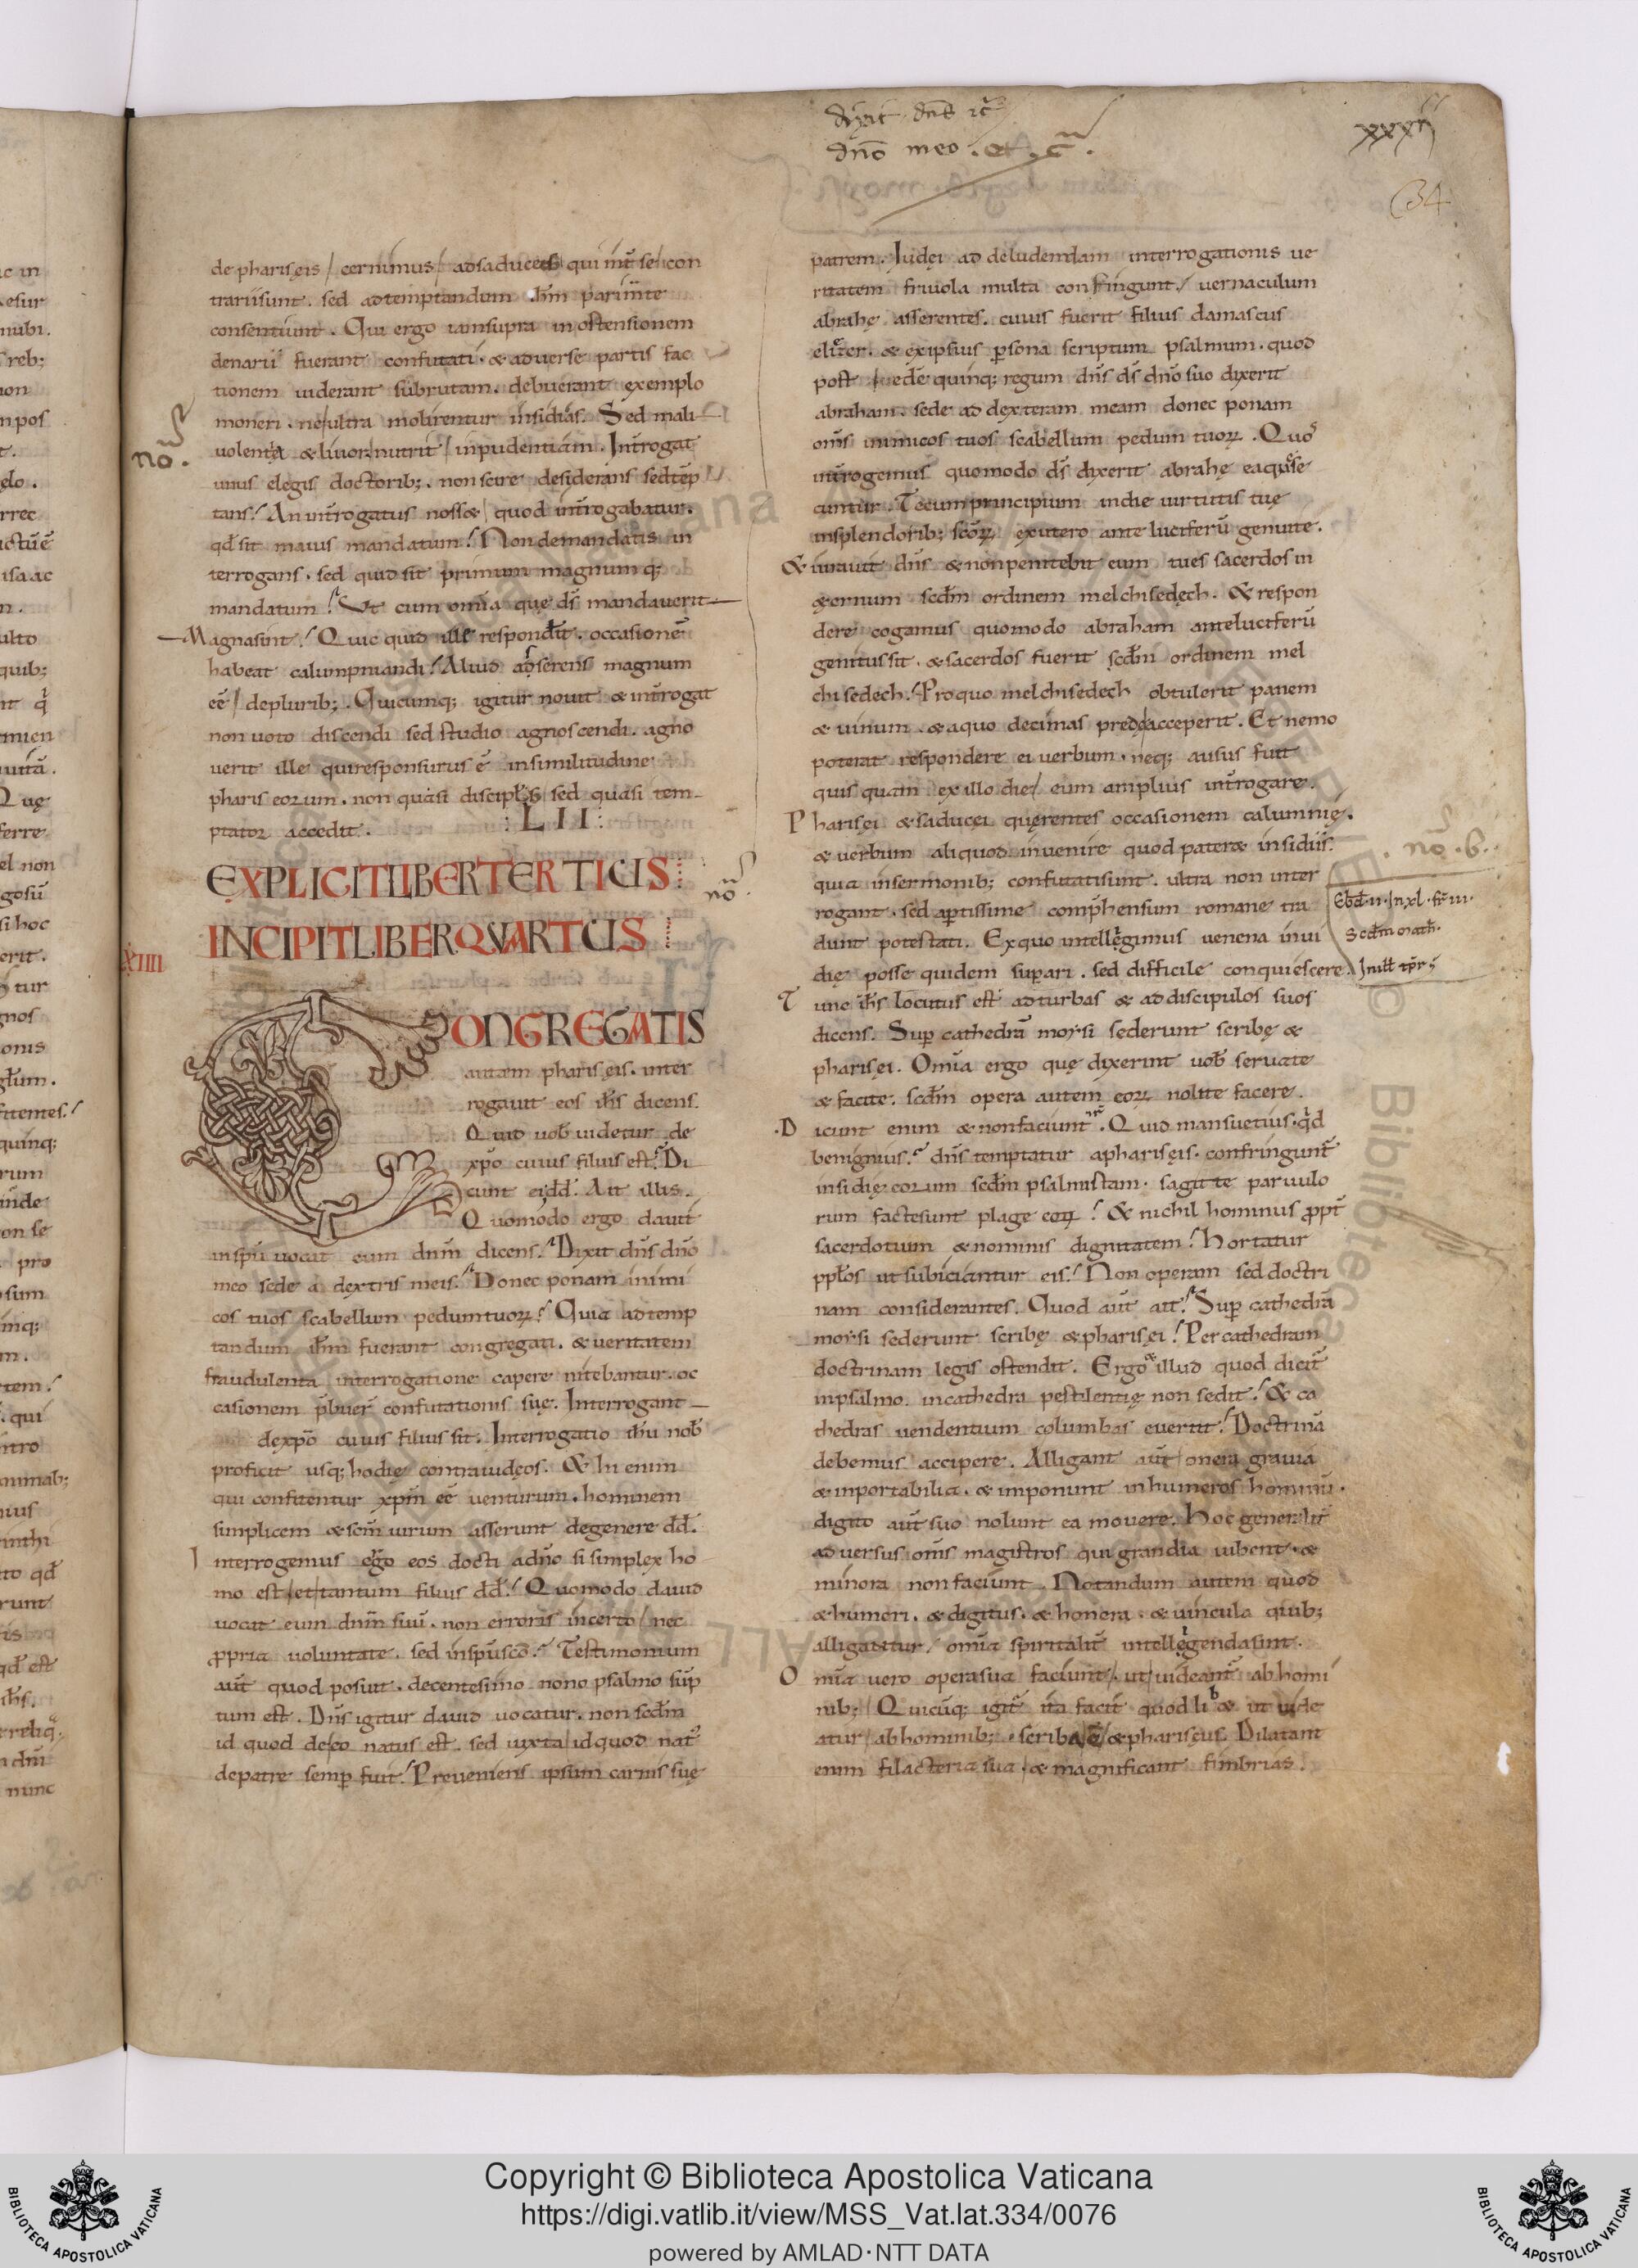 dixit dn̄s
dn̄o meo . et . c̄ .
xxxii
34
de pharisęis / cernimus / ad saduceos qui int̄ se / con
trarii sunt . sed ad temptandum ih̄m parit̄ mente
consentiunt . Qui ergo iam supra in ostensionem
denarii fuerant confutati . & adverse partis fac
tionem viderant subrutam . debuerant exemplo
moneri . ne / ultra molirentur insidias . Sed mali
no .
volentia & livor / nutrit / inpudentiam . Int̄rogat
unus elegis doctorib; . non scire desiderans sed tēp
tans ! An int̄rogatus nosset / quod int̄rogabatur .
qd̄ sit maius mandatum ! Non de mandatis in
terrogans . sed quid sit primum magnumq;
mandatum ! Ut cum om̄ia quę ds̄ mandaverit
Magna sint ! Quic quid ille respond̄it . occasionē
habeat calumpniandi ! Aliud adserens magnum
eē / de plurib; . Quicumq; igitur novit & int̄rogat
non voto discendi sed studio agnoscendi . agno
verit ille qui responsurus ē in similitudine
phariseorum . non quasi discipl̄s / sed quasi tem-
ptator accedit . : L I I :
EXPLICIT LIBER TERTIUS
INCIPIT LIBER QVARTUS
no
XIIII
CONGREGATIS
autem pharisęis . inter
rogavit eos ih̄s dicens .
Quid vob̄ videtur de
xp̄o cuius filius est . Di
cunt ei / dd̄ . Ait illis .
Quomodo ergo davit
in sp̄u vocat eum dn̄m dicens . Dixit dn̄s dn̄o
meo sede a dextris meis . Donec ponam inimi
cos tuos scabellum pedum tuoꝝ ? Quia ad temp
tandum ih̄m fuerant congregati . & veritatem
fraudulenta interrogatione capere nitebantur . oc
casionem p̄buer̄ confutationis suę . Interrogant
de xp̄o cuius filius sit . Interrogatio ih̄u nob̄
proficit usq; hodię contra iudęos . & hi enim
qui confitentur xp̄m eē venturum . hominem
simplicem & sc̄m virum asserunt de genere dd̄ .
Interrogemus ergo eos docti a dn̄o si simplex ho
mo est / et / tantum filius dd̄ ! Quomodo david
vocat eum dn̄m suū . non erroris incerto / nec
ꝓpria voluntate . sed in sp̄u sc̄o . Testimonium
aut̄ quod posuit . de centesimo nono psalmo sup̄
tum est . Dn̄s igitur david vocatur . non scd̄m
id quod de eo natus est . sed iuxta / id quod nat̓
de patre semp̄ fuit ! Preveniens ipsum carnis suę
patrem . Iudęi ad deludendam interrogationis ve
ritatem frivola multa confingunt / vernaculum
abrahę asserentes . cuius fuerit filius damascus
eliezer . & ex ipsius p̄sona scriptum psalmum . quod
post cedē quinq; regum dn̄s ds̄ dn̄o suo dixerit
abraham . sede ad dexteram meam donec ponam
om̄s inimicos tuos scabellum pedum tuoꝝ . Quos
int̄rogemus quomodo ds̄ dixerit abrahę ea quę se
cuntur . Tecum principium in die virtutis tuę
in splendorib; sc̄oꝝ ex utero ante luciferū genui te .
& iuravit dn̄s & non penitebit eum tu es sacerdos in
ęternum scd̄m ordinem melchisedęch . & respon
dere cogamus quomodo abraham ante luciferū
genitus sit . & sacerdos fuerit scd̄m ordinem mel
chisedech ! Pro quo melchisedech obtulerit panem
& vinum . & a quo decimas predę acceperit . Et nemo
poterat respondere ei verbum . neq; ausus fuit
quis quam ex illo die / eum amplius int̄rogare .
Pharisęi & saducei quęrentes occasionem calumnię .
& verbum aliquod invenire quod pateret insidiis .
no . b .
quia in sermonib; confutati sunt . ultra non inter
rogant . sed ap̄tissime comp̄hensum romane tra
dunt potestati . Ex quo intellęgimus venena invi
dię posse quidem sup̄ari . sed difficile conquiescere .
Ebd̄ . ii . In xl . fr̄ iii .
Scd̄m math̄ .
In ill̄ tp̄r ;
Tunc ih̄s locutus est ad turbas & ad discipulos suos
dicens . Sup̄ cathedrā moysi sederunt scribę &
pharisęi . Om̄ia ergo quę dixerint vob̄ servate
& facite . scd̄m opera autem eoꝝ nolite facere .
Dicunt enim & non faciunt . Quid mansuetius . qd
benignius . dn̄s temptatur a pharisęis . confringunt̄
insidię eorum scd̄m psalmistam . sagitte parvulo
rum facte sunt plage eoꝝ ! & nichil hominus ꝓpt̄
sacerdotium & nominis dignitatem ! Hortatur
ppl̄os ut subiciantur eis ! Non operam sed doctri
nam considerantes . Quod aut̄ ait ! Sup̄ cathedrā
moysi sederunt scribę & pharisęi ! Per cathedram
doctrinam legis ostendit . Ergo & illud quod dicit̄
in psalmo . in cathedra pestilentię non sedit ! & ca
thedras vendentium columbas evertit ! Doctrinā
debemus accipere . Alligant aut̄ onera gravia
& inportabilia . & imponunt in humeros hominū .
digito aut̄ suo nolunt ea movere . Hoc generalit̄
adversus om̄s magistros qui grandia iubent . &
minora non faciunt . Notandum autem quod
& humeri . & digitus . & honera . & vincula quib;
alligantur / om̄ia spiritalit̄ intellęgenda sint .
Om̄ia vero opera sua faciunt / ut / videant̄ ab homi
nib; / Quicūq; igit̄ ita facit quod lib & ut vide
atur / ab hominib; . scriba ē / & phariseus . Dilatant
enim filacteria sua . & magnificant fimbrias .
Copyright © Biblioteca Apostolica Vaticana
https://digi.vatlib.it/view/MSS_Vat.lat.334/0076
powered by AMLAD·NTT DATA
BIBLIOTECA APOSTOLICA VATICANA
BIBLIOTECA APOSTOLICA VATICANA